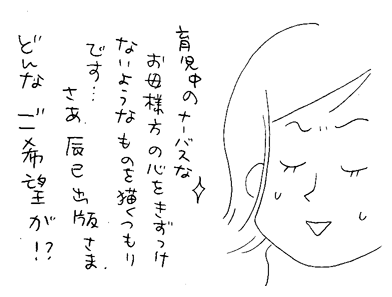 育児中のナーバスな
お母様方の心をきずつけ
ないようなものを描くつもり
です…
さあ、辰巳出版さま
どんなご希望が!?